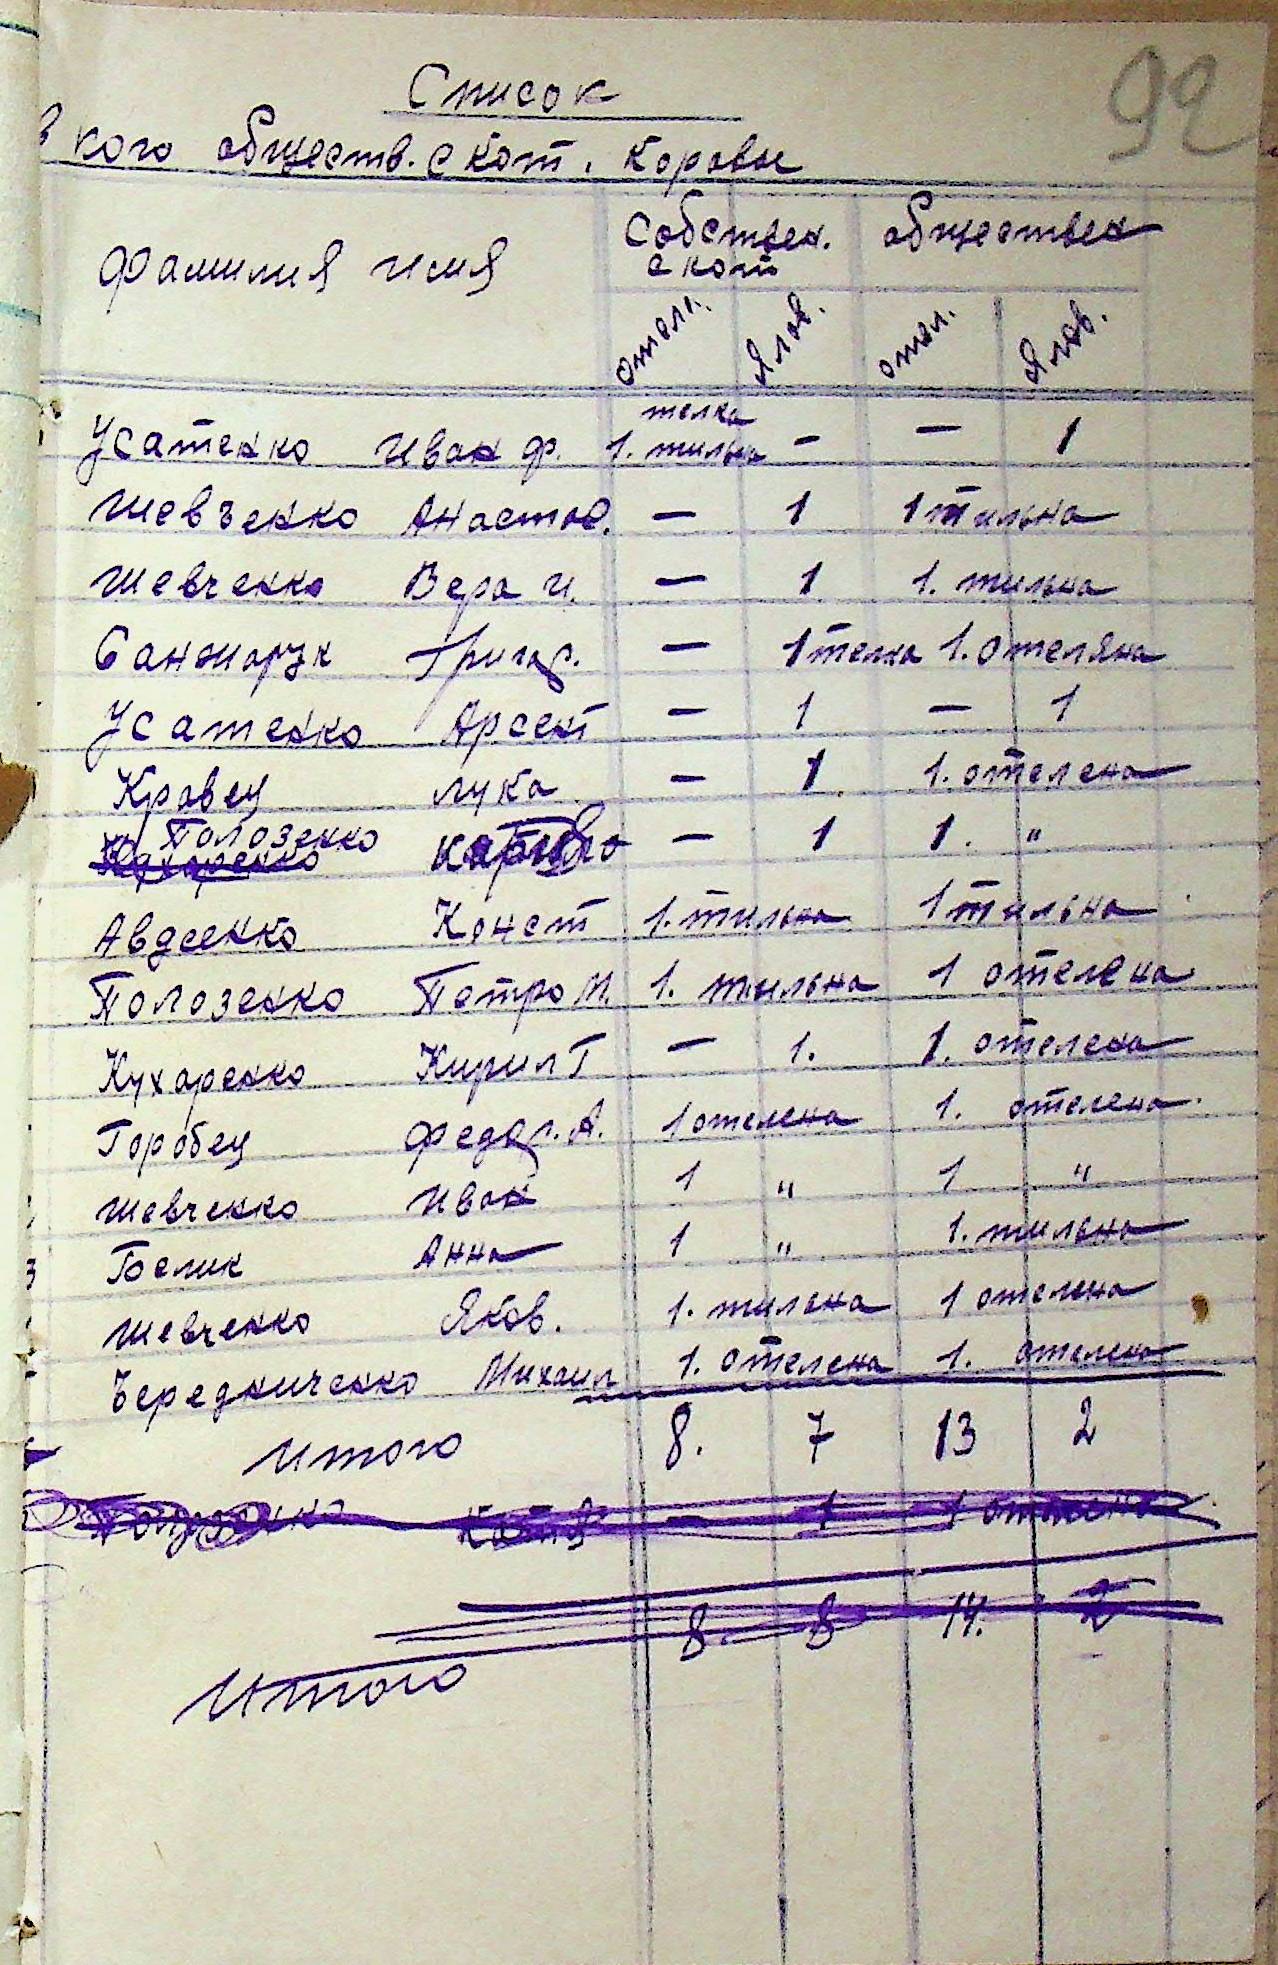 92
Список
в кого обществ. скот. коровы
Фамилия имя Собствен. скот обществен
отел. Ялов. отел. Ялов.
Усатенко Иван Ф. телка 1. тильна — — 1
Шевъенко Анастас. — 1 1 тильна
Шевченко Вера И. — 1 1. тильна
Санжарук Григор. — 1 телка 1. отеляна
Усатенко Арсент — 1 — 1
Кравец Лука — 1. 1. отелена
Полозенко — 1 1. "
Кухаренко
Авдеенко Конст 1. тильна 1 тильна
Полозенко Петро М. 1. тильна 1 отелена
Кухаренко Кирил Г — 1. 1. отелена
Горобец Федор. А. 1 отелена 1. отелена.
Шевченко Иван 1 " 1 "
Белик Анна 1 " 1. тильна
Шевченко Яков. 1. тильна 1 отелена
Бередниченко Михаил 1. отелена 1. отелена
Итого 8. 7 13 2
Катя — 1 1 отелена
8. 8 14. 2
Итого